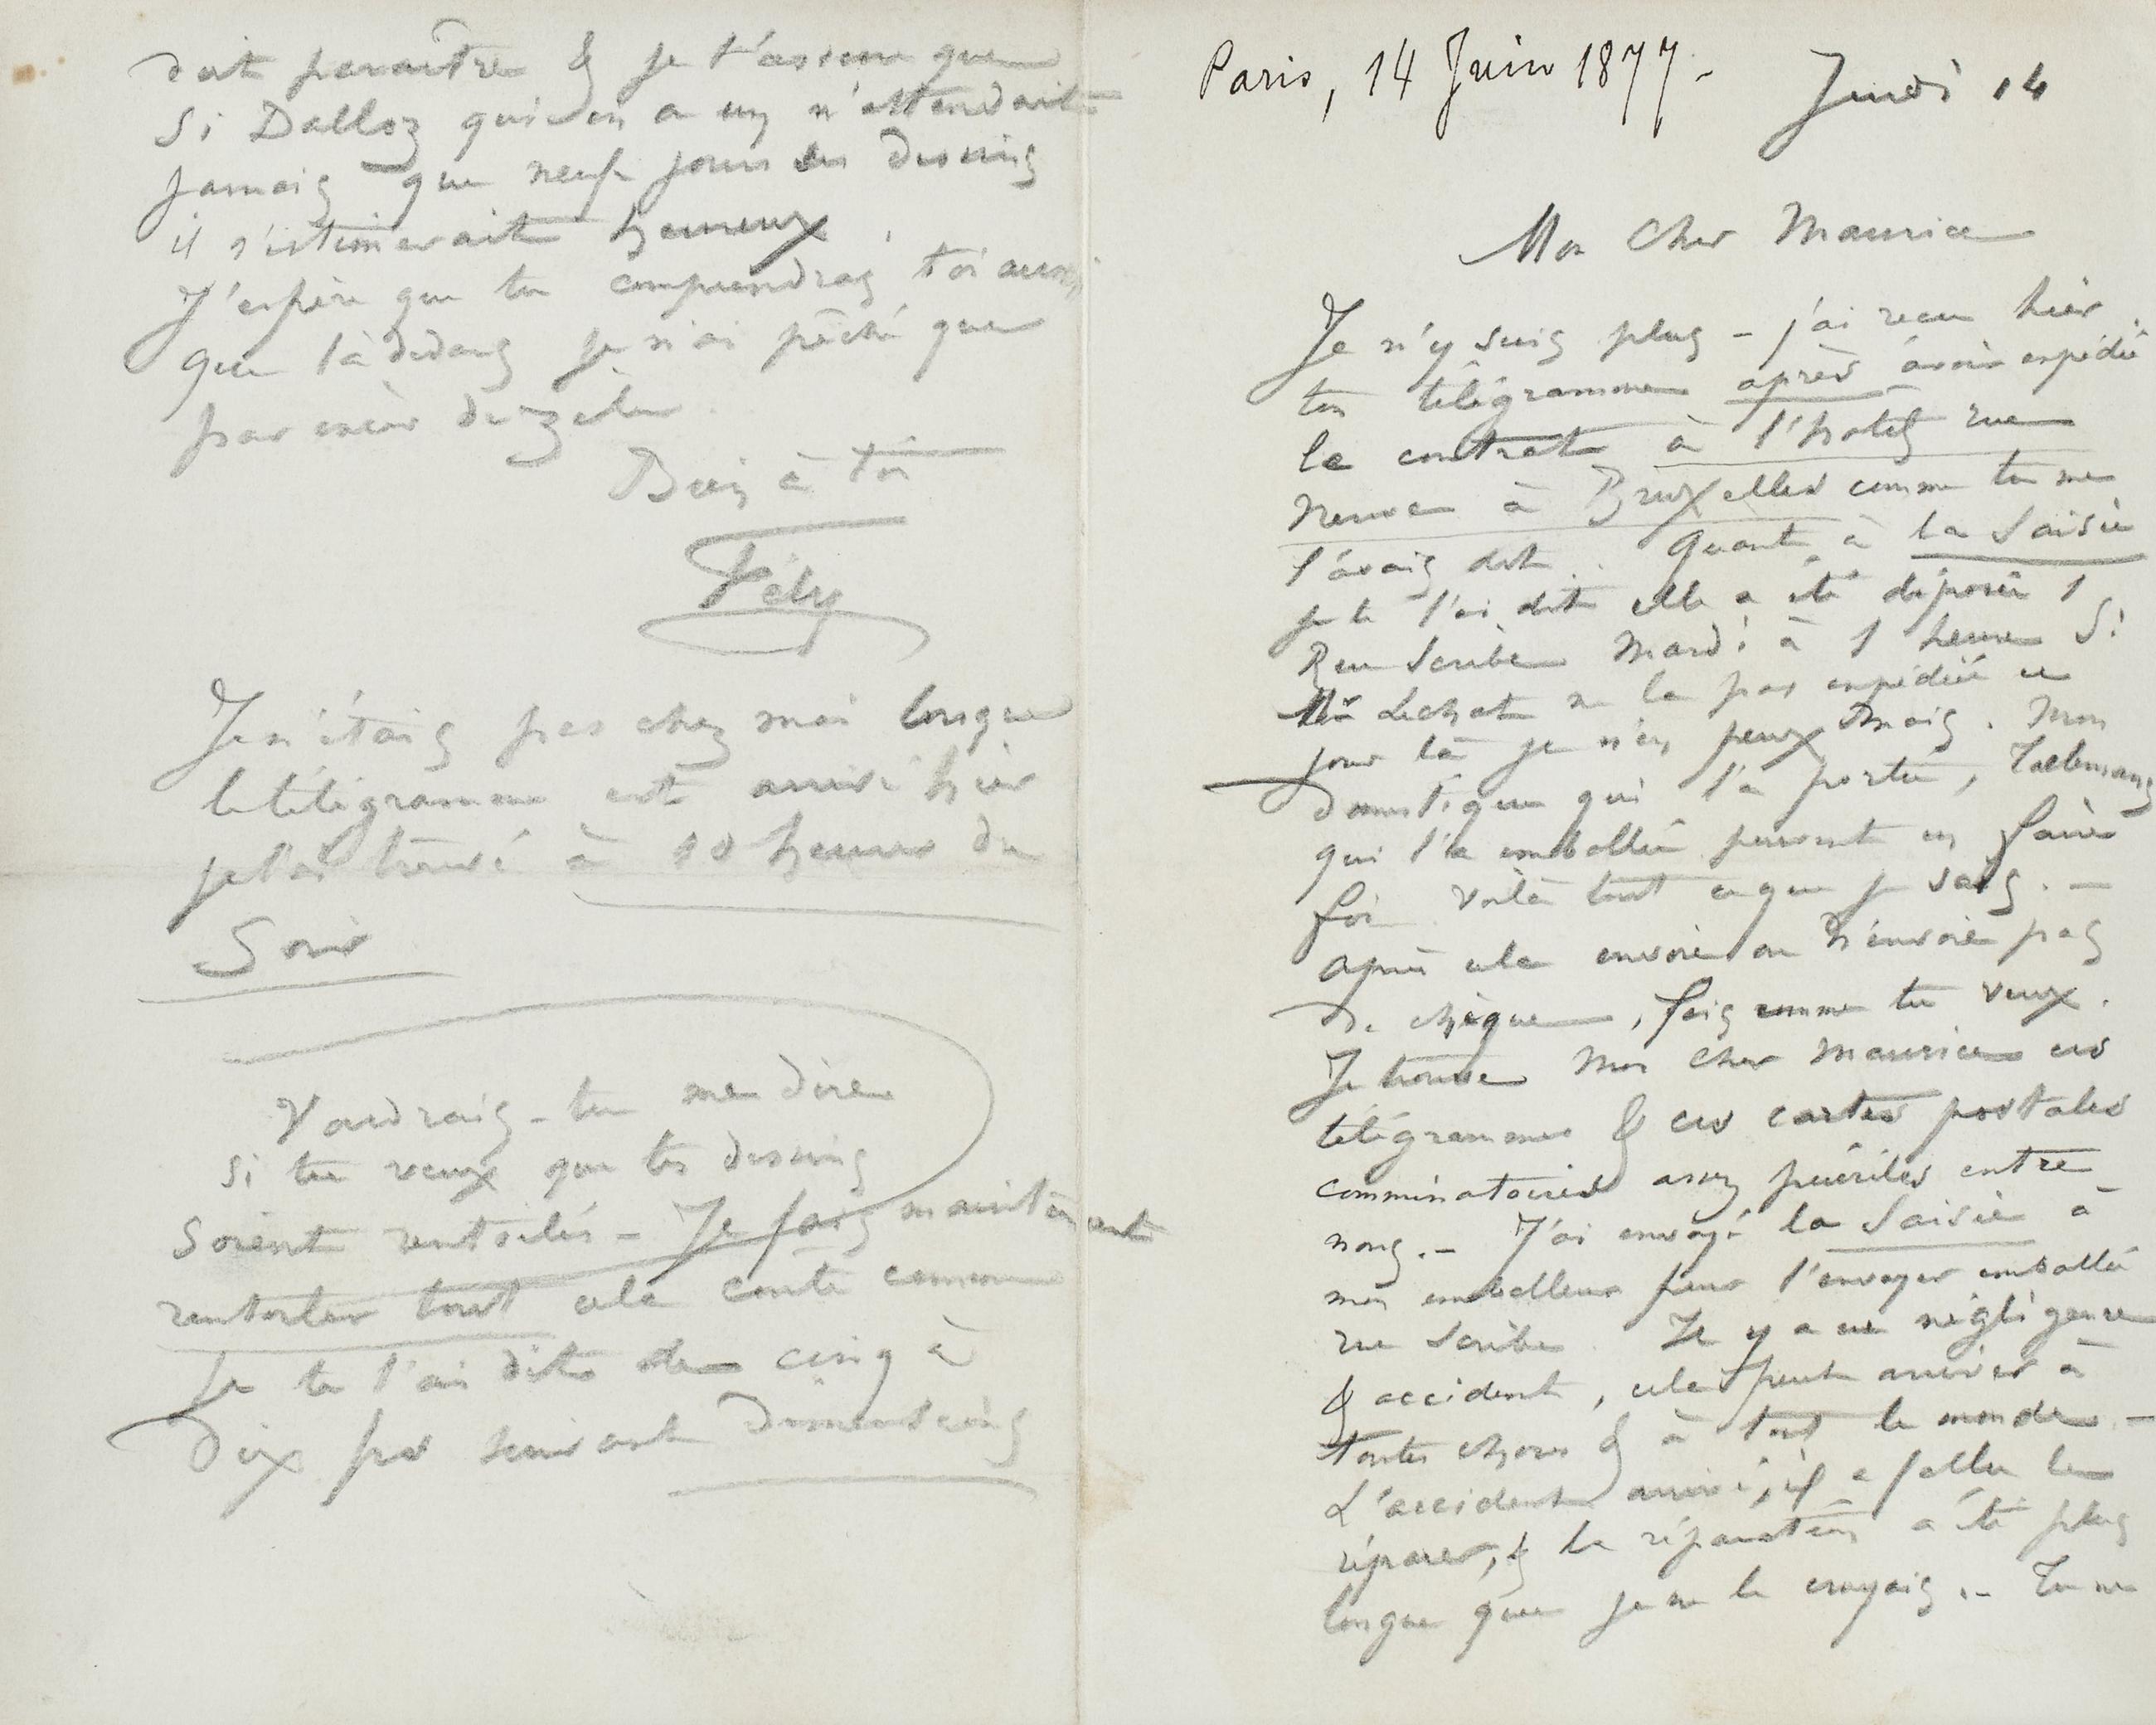 Paris, 14 Juin 1877.-
Jeudi 14
Mon Cher Maurice
Je n'y suis plus - j'ai recu hier
ton télégramme après avoir expédié
le contrat à l'hotel rue
Neuve à Bruxelles comme tu me
l'avais dit. Quant à la Saisie
je te l'ai dit elle a été déposée 1
Rue Scribe Mardi à 1 heure Si
Mr Lechat ne la pas expédiée ce
jour là je n'en peux mais. Mon
domestique qui l'a portée, Tallemans
qui l'a emballée peuvent en faire
foi voilà tout ce que je sais. -
après cela envoie ou n'envoie pas
de chèque, fais comme tu veux.
Je trouve Mon Cher Maurice ces
télégrammes & ces cartes postales
comminatoires assez puériles entre
nous. - J'ai envoyé la Saisie à
mon emballeur pour l'envoyer emballée
rue Scribe Il y a eu négligence
& accident, cela peut arriver à
toutes choses & à tout le monde. -
L'accident arrivé, il a fallu le
réparer, & la réparation a été plus
longue que je ne le croyais. - Tu me
doit paraître & je t'assure que
Si Dalloz qui en a un n'attendait
jamais que neuf jours ses dessins
il s'estimerait heureux.
J'espère que tu comprendras toi aussi
que là dedans je n'ai péché que
par excès de zèle.
Bien à toi
Fély
Je n'étais pas chez moi lorsque
le télégramme est arrivé hier
je l'ai trouvé à 10 heures du
Soir
Voudrais-tu me dire
si tu veux que tes dessins
soient rentoilés - Je fais maintenant
rentoiler tout cela coute comme
je te l'ai dit de cinq à
Dix frs suivant dimensions